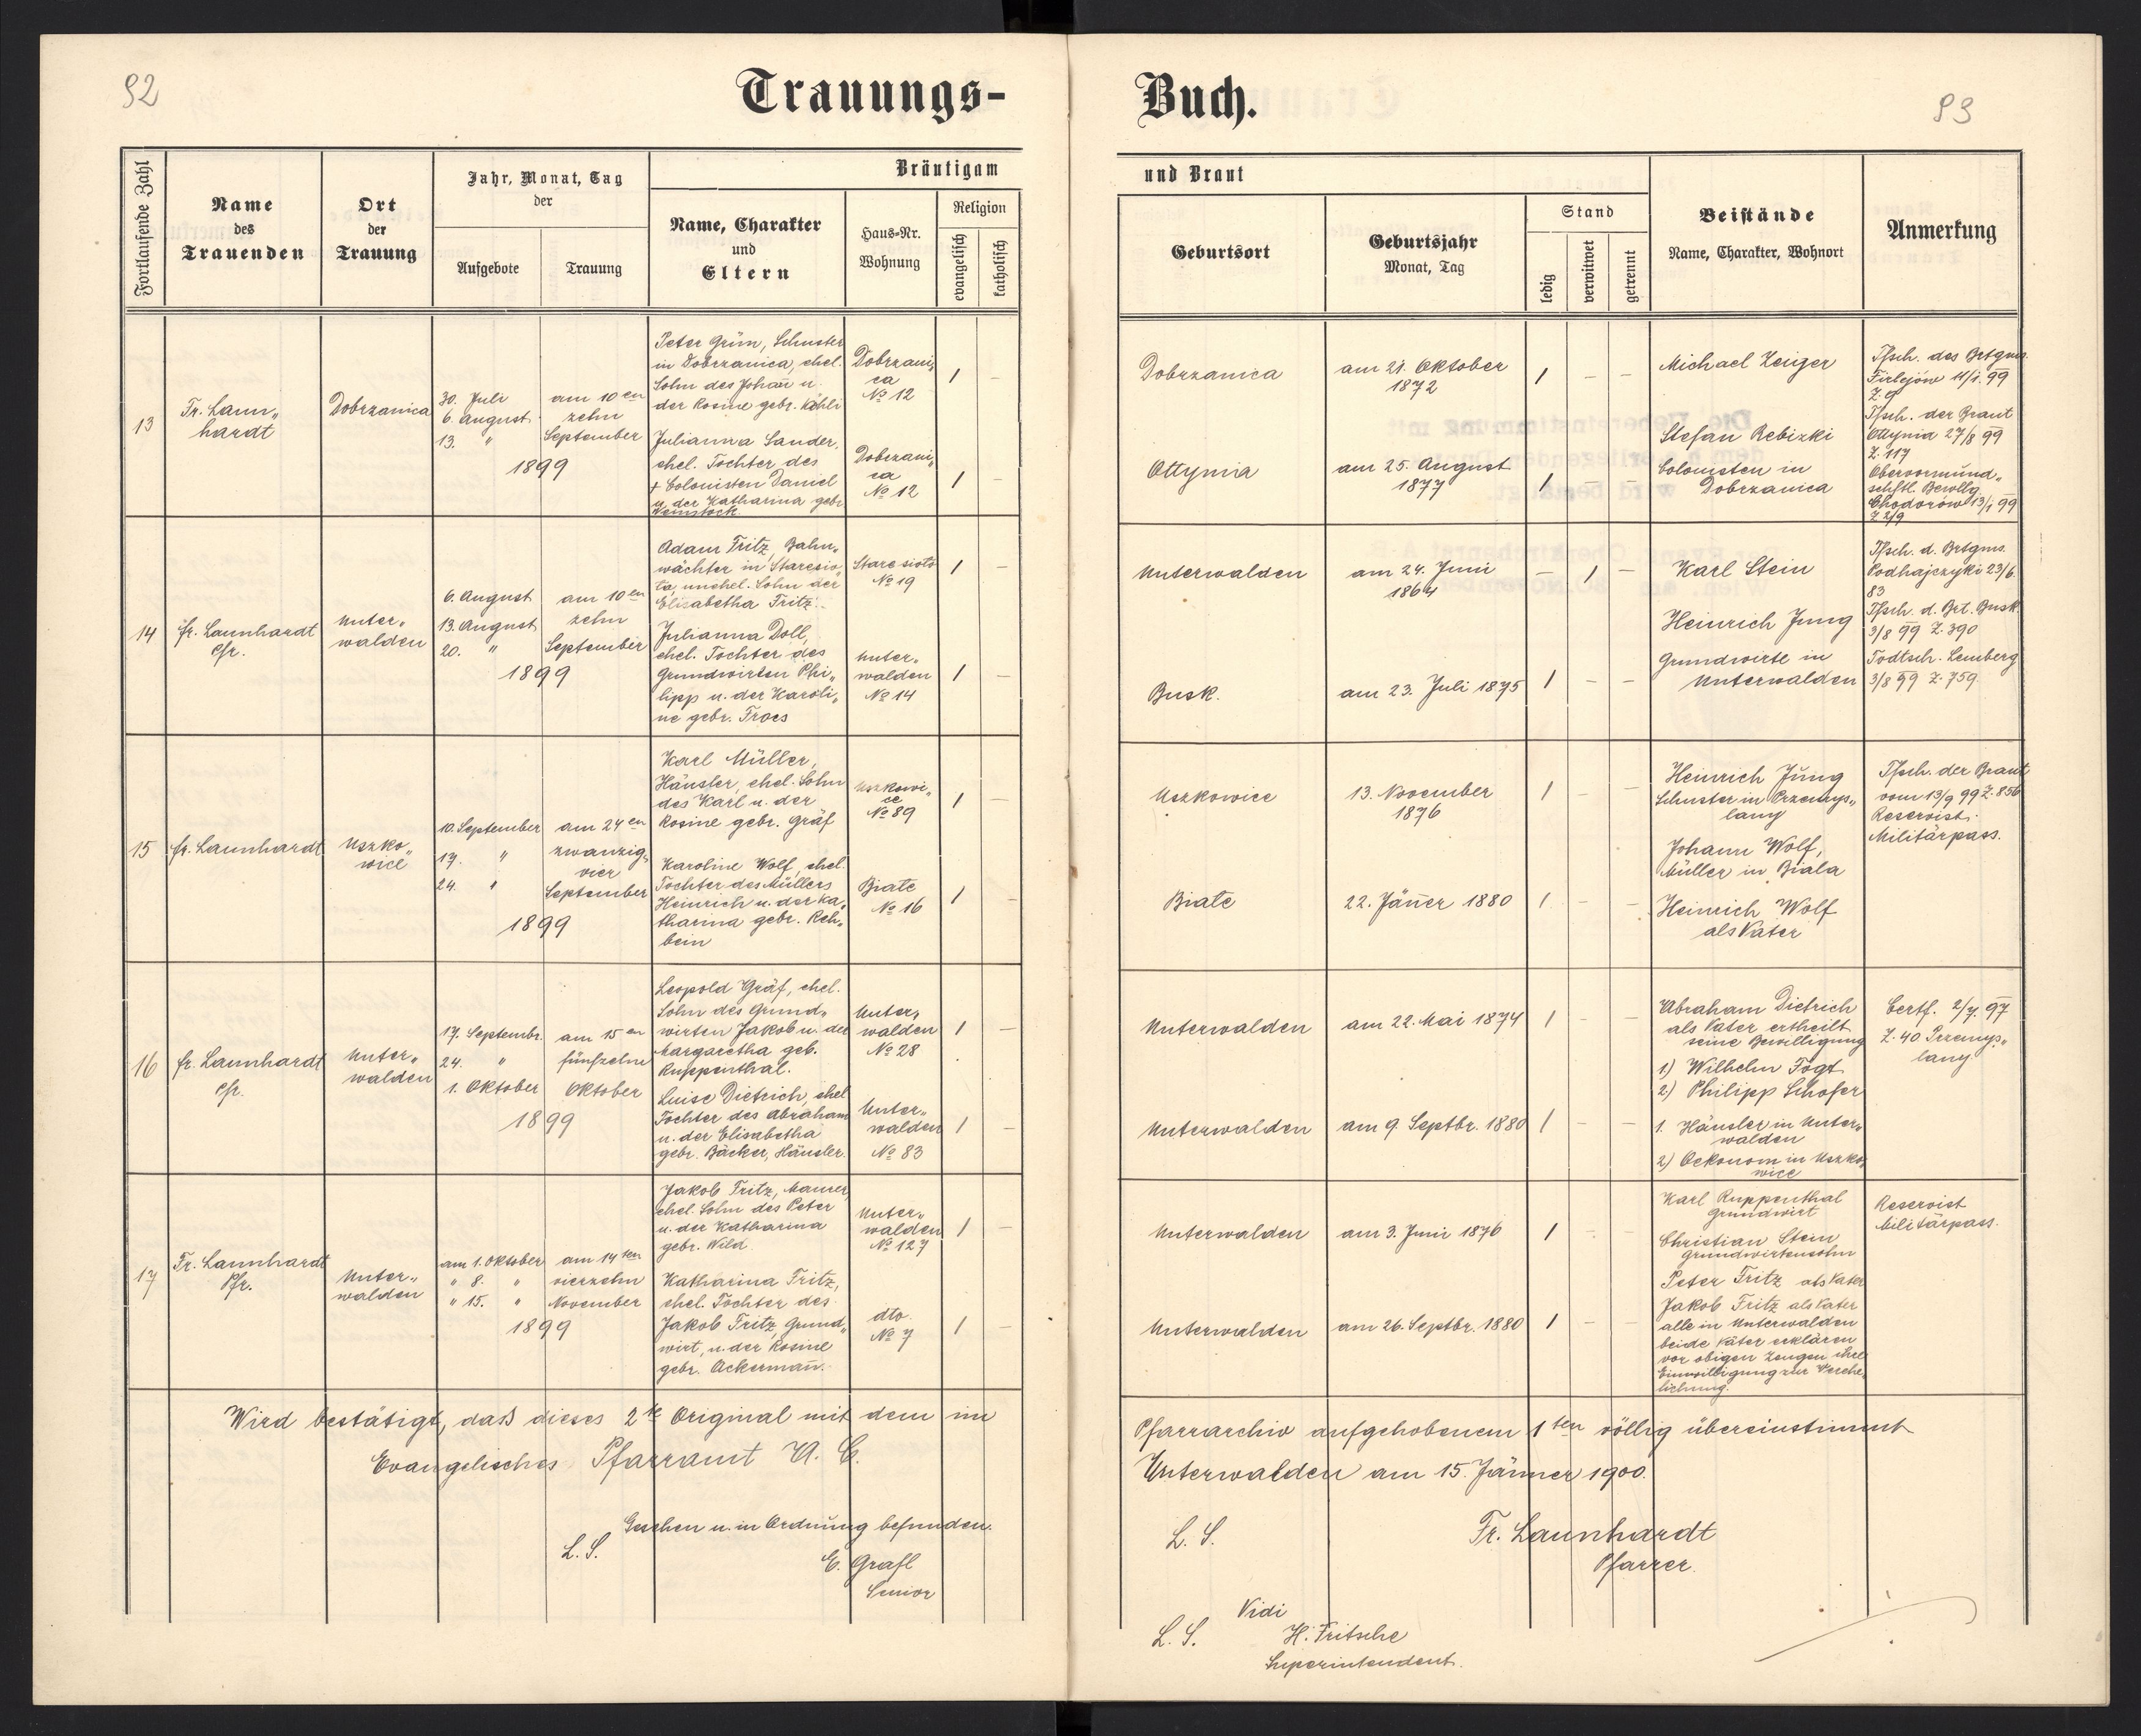 92
Trauungs-
Buch.
93
Fortlaufende Zahl
Name
des
Trauenden
Ort
der
Trauung
Jahr, Monat, Tag
der
Aufgebote
Trauung
Bräutigam
Name, Charakter
und
Eltern
Haus-Nr.
Wohnung
Religion
evangelisch
katholisch
und Braut
Geburtsort
Geburtsjahr
Monat, Tag
Stand
ledig
verwitwet
getrennt
Beistände
Name, Charakter, Wohnort
Anmerkung
13
Fr. Laun„
hardt
Dobrzanica
30. Juli
6. August
13. "
am 10en
zehn
September
1899
Peter Grün, Schuster
in Dobrzanica, ehel.
Sohn des Johañ u.
der Rosine gebr. Köhli
Dobrzani„
ca
No 12
/ –
Julianna Sander,
ehel. Tochter des
+ Colonisten Daniel
u. der Katharina gebr
Weinstock
Dobrzani„
ca
No 12
/ –
Dobrzanica
am 21. Oktober
1872
/ – –
Ottynia
am 25. August
1877
/ – –
Michael Zeuger
Stefan Rebizki
Colonisten in
Dobrzanica
Tfsch. des Brtgms.
Firlejów 11/1. 99
Z. 9
Tfsch. der Braut
Ottynia 27/8 99
Z. 117
Obervormünd„
schftl. Bewllg
Chodorów 13/1 99
Z 2/9
14
fr. Launhardt
Pfr.
Unter„
walden
6. August
13. August
20. "
am 10en
zehn
September
1899
Adam Fritz, Bahn„
wächter in Staresio„
ta, unehel. Sohn der
Elisabetha Fritz.
Stare siolo
No 19
/ –
Julianna Doll,
ehel. Tochter des
Grundwirten Phi„
lipp u. der Karoli„
ne gebr. Troes
Unter„
walden
No 14
/ –
Unterwalden
am 24. Juni
1864
– / –
Busk.
am 23. Juli 1875
/ – –
Karl Stein
Heinrich Jung
Grundwirte in
Unterwalden
Tfsch. d. Brtgms.
Podhajczyki 23/6.
83
Tfsch. d. Brt. Busk
3/8 99 Z. 390
Todtsch. Lemberg
3/8 99 Z. 759
15
fr. Launhardt
Uszko„
wice
10. September
17. "
24. "
am 24en
zwanzig„
vier
September
1899
Karl Müller,
Häusler, ehel. Sohn
des Karl u. der
Rosine gebr. Gräf
Uszkowi„
ce
No 89
/ –
Karoline Wolf, ehel.
Tochter des Müllers
Heinrich u. der Ka„
tharina gebr. Reh„
bein
Biate
No 16
/ –
Uszkowice
13. November
1876
/ – –
Biate
22. Jäñer 1880
/ – –
Heinrich Jung
Schuster in Przemys„
lany
Johann Wolf,
Müller in Biala
Heinrich Wolf
als Vater
Tfsch. der Braut
vom 13/9 99 Z. 856
Reservist.
Militärpass.
16
fr. Launhardt
Pfr.
Unter„
walden
17. Septembr.
24. "
1. Oktober
am 15en
fünfzehn
Oktober
1899
Leopold Gräf, ehel.
Sohn des Grund„
wirten Jakob u. der
Margaretha geb.
Ruppenthal.
Unter„
walden
No 28
/ –
Luise Dietrich, ehel
Tochter des Abraham
u. der Elisabetha
gebr. Bäcker, Häusler.
Unter„
walden
No 83
/ –
Unterwalden
am 22. Mai 1874
/ – –
Unterwalden
am 9. Septbr. 1880
/ – –
Abraham Dietrich
als Vater ertheilt
seine Bewilligung
1) Wilhelm Fogt
2) Philipp Schofer
1. Häusler in Unter„
walden
2) Oekonom in Uszko„
wice
Certf. 2/7. 97
Z. 40 Przemys„
lany
17
Fr. Launhardt
Pfr.
Unter„
walden
am 1. Oktober
" 8. "
" 15. "
am 14ten
vierzehn
November
1899
Jakob Fritz, Maurer,
ehel. Sohn des Peter
u. der Katharina
gebr. Wild
Unter„
walden
No 127
/ –
Katharina Fritz,
ehel. Tochter des
Jakob Fritz, Grund„
wirt, u. der Rosine
gebr. Ackermañ.
dto.
No 7
/ –
Unterwalden
am 3. Juni 1876
/ – –
Unterwalden
am 26. Septbr. 1880
/ – –
Karl Ruppenthal
Grundwirt
Christian Stein
Grundwirtensohn
Peter Fritz als Vater
Jakob Fritz als Vater
alle in Unterwalden
beide Väter erklären
vor obigen Zeugen ihre
Einwilligung zur Verehe„
lichung.
Reservist
Militärpass.
Wird bestätigt, daß dieses 2te Original mit dem im
Pfarrarchiv aufgehobenem 1ten völlig übereinstimmt
Evangelisches Pfarramt A. C.
Unterwalden am 15. Jänner 1900.
Gesehen u. in Ordnung befunden.
L. S.
E. Grafl
Senior
L. S.
Fr. Launhardt
Pfarrer.
Vidi
L. S.
H. Fritsche
Superintendent.